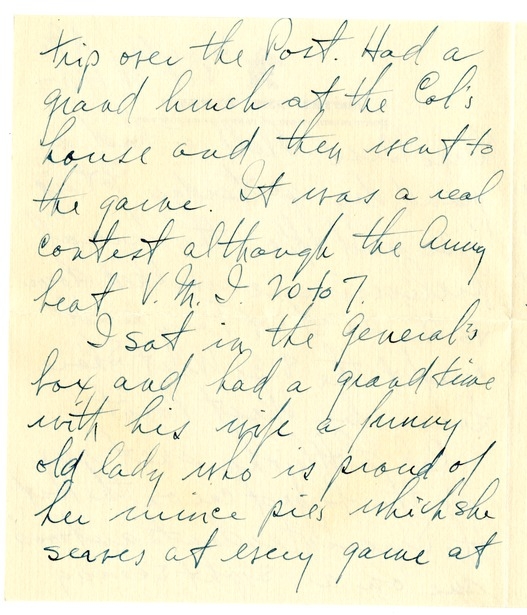 trip over the Post. Had a
grand lunch at the Col's
house and then went to
the game. It was a real
contest although the Army
beat V. M. I. 20 to 7.
I sat in the General's
box and had a grand time
with his wife a funny
old lady who is proud of
her mince pies which she
serves at every game at